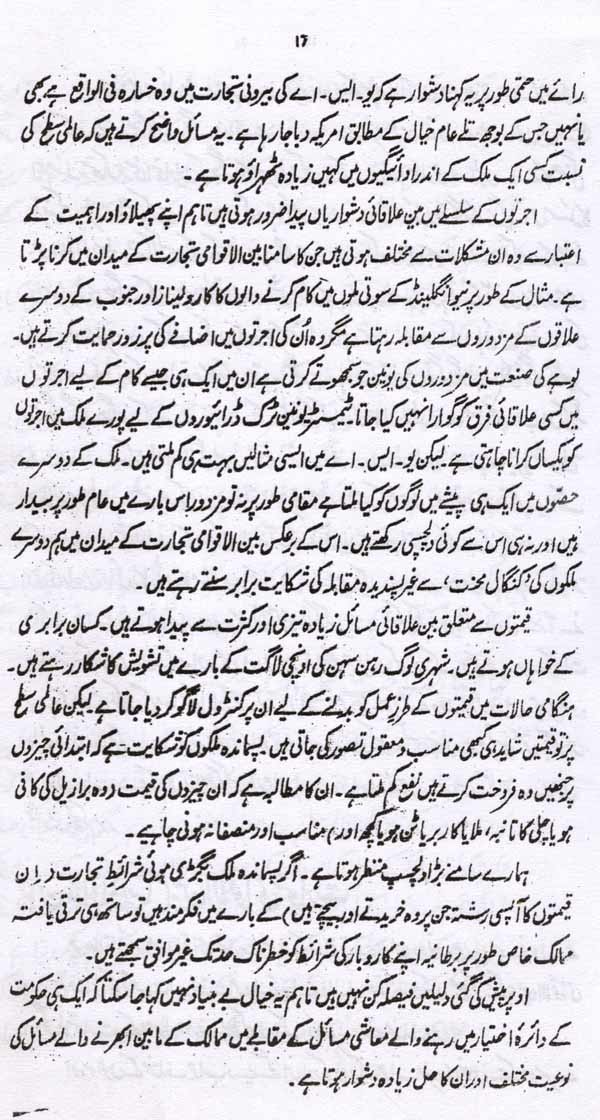 ۱۶
رائے میں حتمی طور پر یہ کہنا دشوار ہے کہ یو۔ایس۔اے کی بیرونی تجارت میں وہ خسارہ فی الواقع ہے بھی
یا نہیں جس کے بوجھ تلے عام خیال کے مطابق امریکہ دبا جا رہا ہے۔ یہ مسائل واضح کرتے ہیں کہ عالمی سطح کی
نسبت کسی ایک ملک کے اندر ادائیگیوں میں کہیں زیادہ ٹھہراؤ ہوتا ہے۔
اجرتوں کے سلسلے میں بین علاقائی دشواریاں پیدا ضرور ہوتی ہیں تاہم اپنے پھیلاؤ اور اہمیت کے
اعتبار سے وہ ان مشکلات سے مختلف ہوتی ہیں جن کا سامنا بین الاقوامی تجارت کے میدان میں کرنا پڑتا
ہے۔ مثال کے طور پر نیو انگلینڈ کے سوتی ملوں میں کام کرنے والوں کا کارولینا ز اور جنوب کے دوسرے
علاقوں کے مزدوروں سے مقابلہ رہتا ہے مگر وہ اُن کی اجرتوں میں اضافے کی پر زور حمایت کرتے ہیں۔
لوہے کی صنعت میں مزدوروں کی یونین جو سمجھوتے کرتی ہے ان میں ایک ہی جیسے کام کے لیے اجرتوں
میں کسی علاقائی فرق کو گوارا نہیں کیا جاتا۔ ٹیمسٹر یونین ٹرک ڈرائیوروں کے لیے پورے ملک میں اجرتوں
کو یکساں کرانا چاہتی ہے۔ لیکن یو۔ایس۔اے میں ایسی مثالیں بہت ہی کم ملتی ہیں۔ ملک کے دوسرے
حصّوں میں ایک ہی پیشے میں لوگوں کو کیا ملتا ہے مقامی طور پر نہ تو مزدور اس بارے میں عام طور پر بیدار
ہیں اور نہ ہی اس سے کوئی دلچسپی رکھتے ہیں۔ اس کے برعکس بین الاقوامی تجارت کے میدان میں ہم دوسرے
ملکوں کی ’کنگال محنت‘ سے غیر پسندیدہ مقابلہ کی شکایت برابر سنتے رہتے ہیں۔
قیمتوں سے متعلق بین علاقائی مسائل زیادہ تیزی اور کثرت سے پیدا ہوتے ہیں۔ کسان برابری
کے خواہاں ہوتے ہیں۔ شہری لوگ رہن سہن کی اونچی لاگت کے بارے میں تشویش کا شکار رہتے ہیں۔
ہنگامی حالات میں قیمتوں کے طرزِ عمل کو بدلنے کے لیے ان پر کنٹرول لاگو کر دیا جاتا ہے لیکن عالمی سطح
پر تو قیمتیں شاید ہی کبھی مناسب و معقول تصور کی جاتی ہیں۔ پسماندہ ملکوں کو شکایت ہے کہ ابتدائی چیزوں
پر جنھیں وہ فروخت کرتے ہیں نفع کم ملتا ہے۔ ان کا مطالبہ ہے کہ ان چیزوں کی قیمت (وہ برازیل کی کافی
ہو یا چلی کا تانبہ، ملایا کا ربر یا ٹن ہو یا کچھ اور) مناسب اور منصفانہ ہونی چاہیے۔
ہمارے سامنے بڑا دلچسپ منظر ہوتا ہے۔ اگر پسماندہ ملک بگڑی ہوئی شرائط تجارت (ان
قیمتوں کا آپسی رشتہ جن پر وہ خریدتے اور بیچتے ہیں) کے بارے میں فکر مند ہیں تو ساتھ ہی ترقی یافتہ
ممالک خاص طور پر برطانیہ اپنے کاروبار کی شرائط کو خطرناک حد تک غیر موافق سمجھتے ہیں۔
اوپر پیش کی گئی دلیلیں فیصلہ کن نہیں ہیں تاہم یہ خیال بے بنیاد نہیں کہا جا سکتا کہ ایک ہی حکومت
کے دائرۂ اختیار میں رہنے والے معاشی مسائل کے مقابلے میں ممالک کے مابین ابھرنے والے مسائل کی
نوعیت مختلف اور ان کا حل زیادہ دشوار ہوتا ہے۔